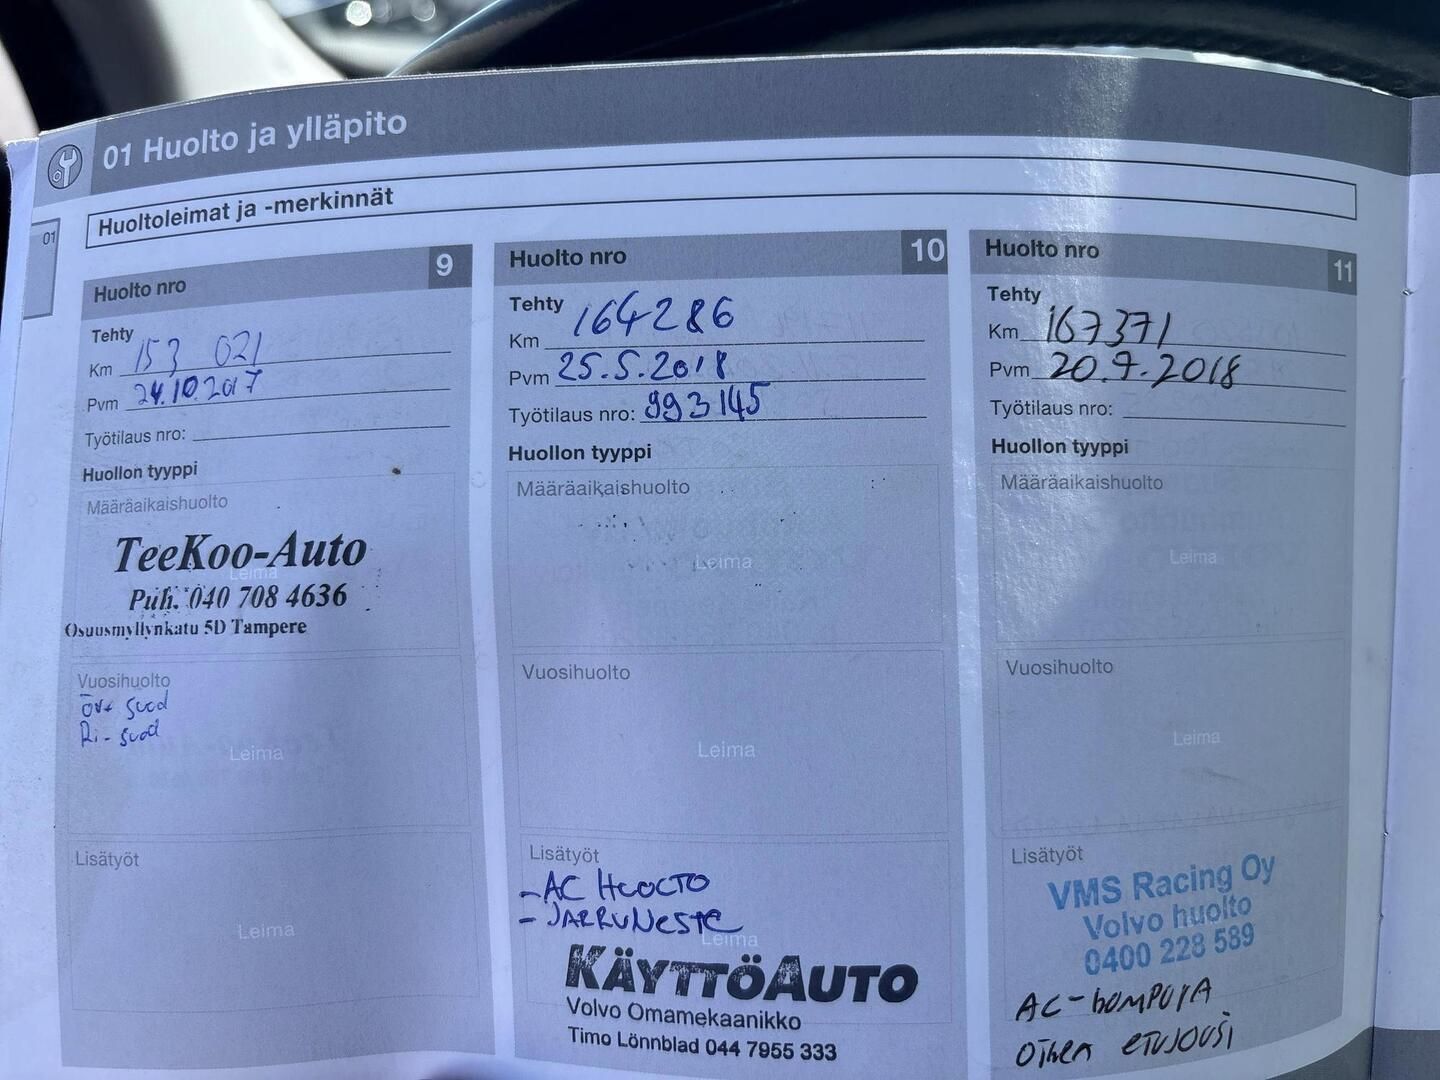 01 Huolto ja ylläpito
Huoltoleimat ja -merkinnät
01
Huolto nro 9
Tehty
Km 153 021
Pvm 24.10.2017
Työtilaus nro:
Huollon tyyppi
Määräaikaishuolto
Leima
TeeKoo-Auto
Puh. 040 708 4636
Osuusmyllynkatu 5D Tampere
Vuosihuolto
Leima
Lisätyöt
Leima
Huolto nro 10
Tehty
Km 164286
Pvm 25.5.2018
Työtilaus nro: 993145
Huollon tyyppi
Määräaikaishuolto
Leima
Vuosihuolto
Leima
Lisätyöt
- AC HUOLTO
- JARRUNESTE
Leima
KÄYTTÖAUTO
Volvo Omamekaanikko
Timo Lönnblad 044 7955 333
Huolto nro 11
Tehty
Km 167371
Pvm 20.9.2018
Työtilaus nro:
Huollon tyyppi
Määräaikaishuolto
Leima
Vuosihuolto
Leima
Lisätyöt
VMS Racing Oy
Volvo huolto
0400 228 589
AC-
OIKEA ETUJOUSI